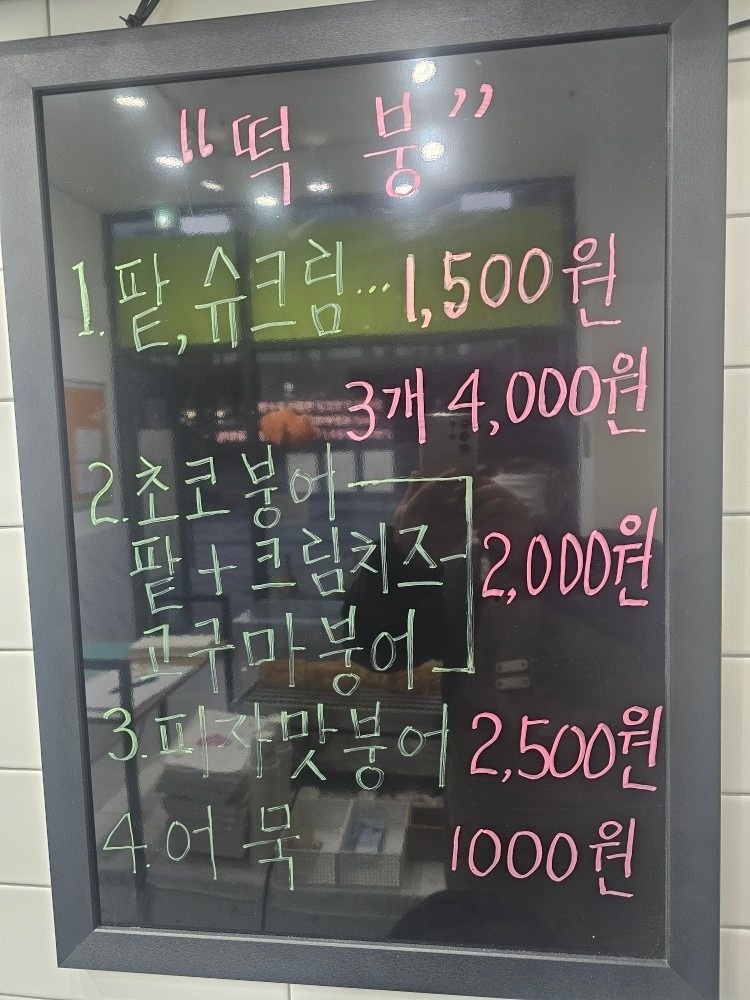 "떡 붕"
1. 팥, 슈크림... 1,500원
3개 4,000원
2. 초코붕어
팥 + 크림치즈 2,000원
고구마붕어
3. 피자맛붕어 2,500원
4. 어묵 1000원